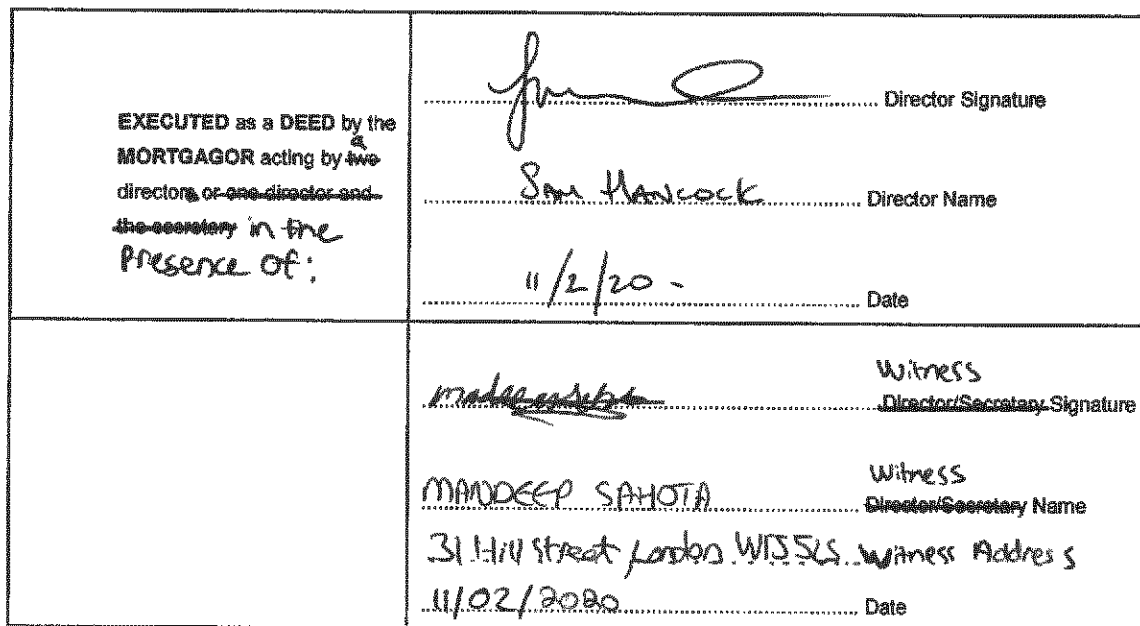 EXECUTED as a DEED by the
MORTGAGOR acting by two a
directors or one director and
the secretary in the
Presence of:
Director Signature
SAM HANCOCK Director Name
11/2/20 - Date
Witness
Director/Secretary Signature
Witness
MANDEEP SAHOTA Director/Secretary Name
31 Hill Street London W1J 5LS Witness Address
11/02/2020 Date